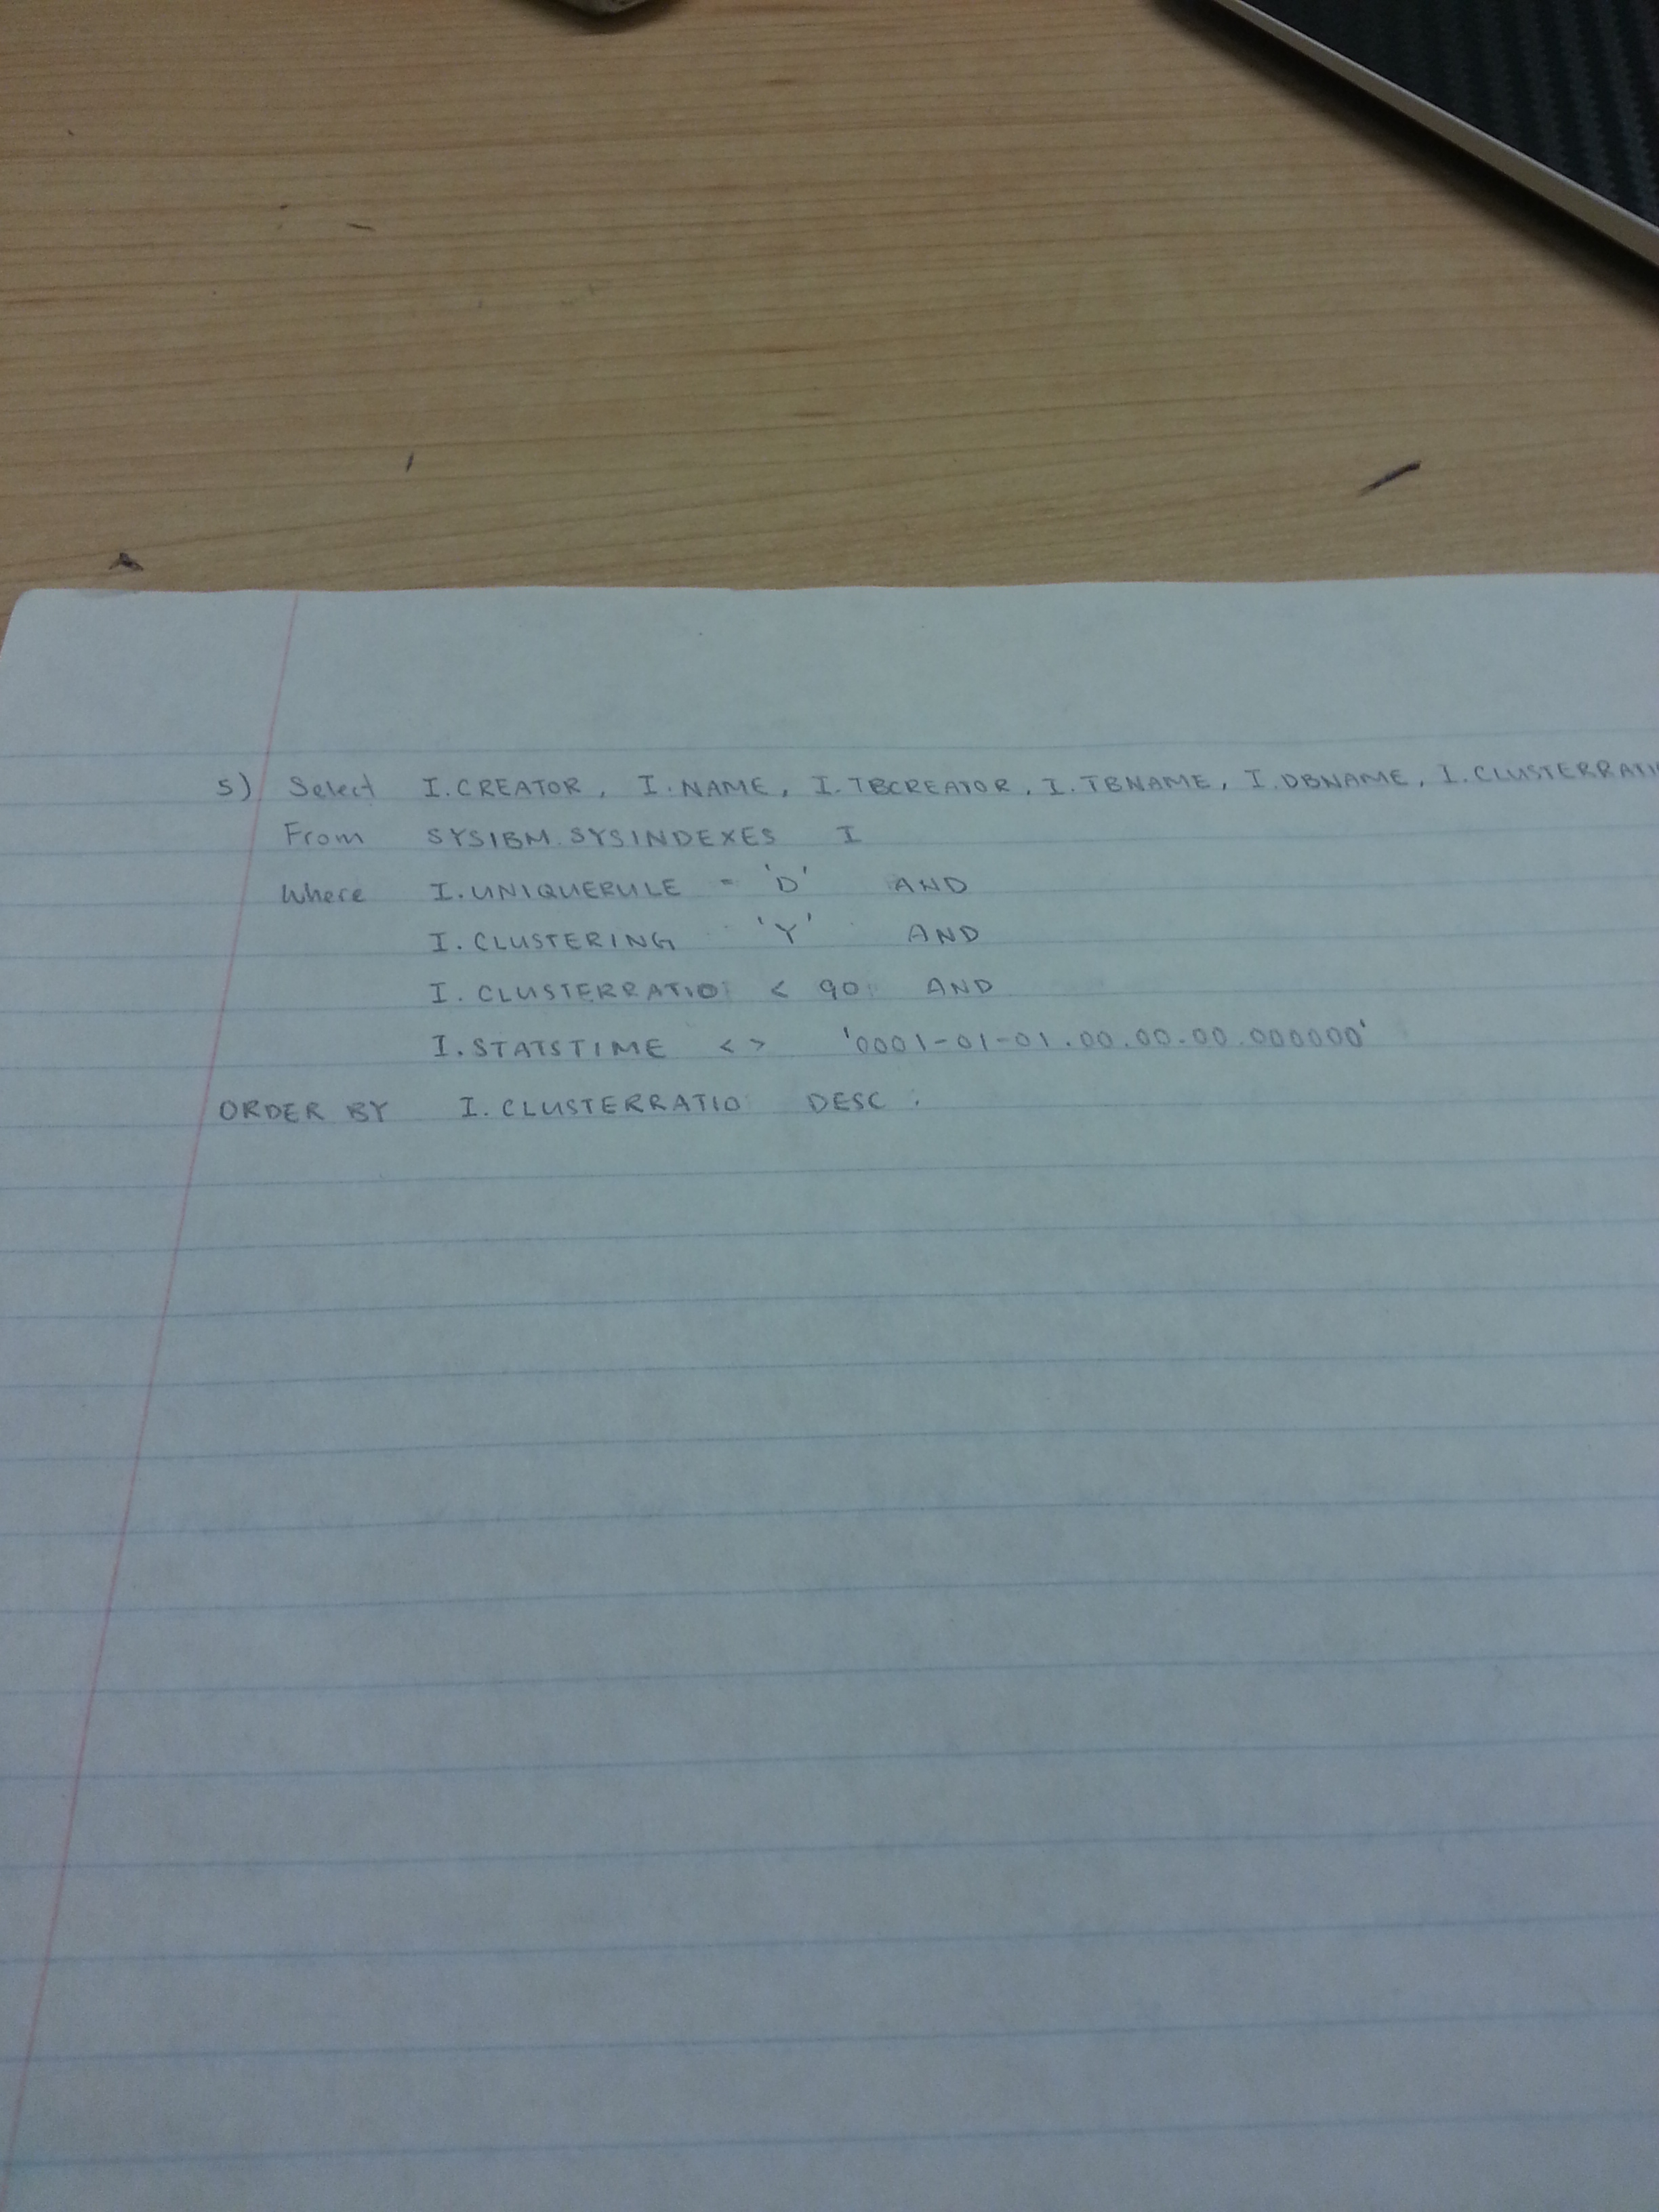 5) Select I.CREATOR, I.NAME, I.TBCREATOR, I.TBNAME, I.DBNAME, I.CLUSTERRATI
From SYSIBM.SYSINDEXES I
Where I.UNIQUERULE = 'D' AND
I.CLUSTERING 'Y' AND
I.CLUSTERRATIO < 90 AND
I.STATSTIME <> '0001-01-01.00.00.00.000000'
ORDER BY I.CLUSTERRATIO DESC;